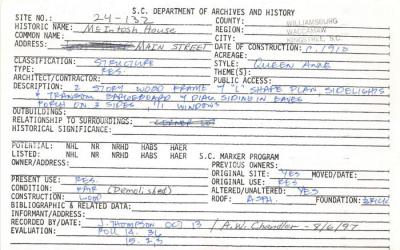 S.C. DEPARTMENT OF ARCHIVES AND HISTORY
SITE NO.: 24-132 COUNTY: WILLIAMSBURG
HISTORIC NAME: McIntosh House REGION: WACCAMAW
COMMON NAME: CITY: KINGSTREE, S.C.
ADDRESS: MAIN STREET DATE OF CONSTRUCTION: C. 1910
ACREAGE:
CLASSIFICATION: STRUCTURE STYLE: QUEEN ANNE
TYPE: RES. THEME(S):
ARCHITECT/CONTRACTOR: PUBLIC ACCESS:
DESCRIPTION: 2 STORY WOOD FRAME, "L" SHAPE PLAN, SIDELIGHTS
& TRANSOM, BARGEBOARD & DIAG. SIDING IN EAVES
PORCH ON 3 SIDES, 1/1 WINDOWS
OUTBUILDINGS:
RELATIONSHIP TO SURROUNDINGS: CORNER LOT
HISTORICAL SIGNIFICANCE:
POTENTIAL: NHL NR NRHD HABS HAER
LISTED: NHL NR NRHD HABS HAER S.C. MARKER PROGRAM
PREVIOUS OWNERS:
ORIGINAL SITE: YES MOVED/DATE:
PRESENT USE: RES. ORIGINAL USE: RES
CONDITION: FAIR (Demolished) ALTERED/UNALTERED: YES
CONSTRUCTION: WOOD ROOF: ASPH. FOUNDATION: BRICK
BIBLIOGRAPHIC & RELATED DATA:
INFORMANT/ADDRESS:
RECORDED BY/DATE: J. THOMPSON OCT 13 / A.W. Chandler - 8/6/97
EVALUATION: ROLL 14.36
15.23